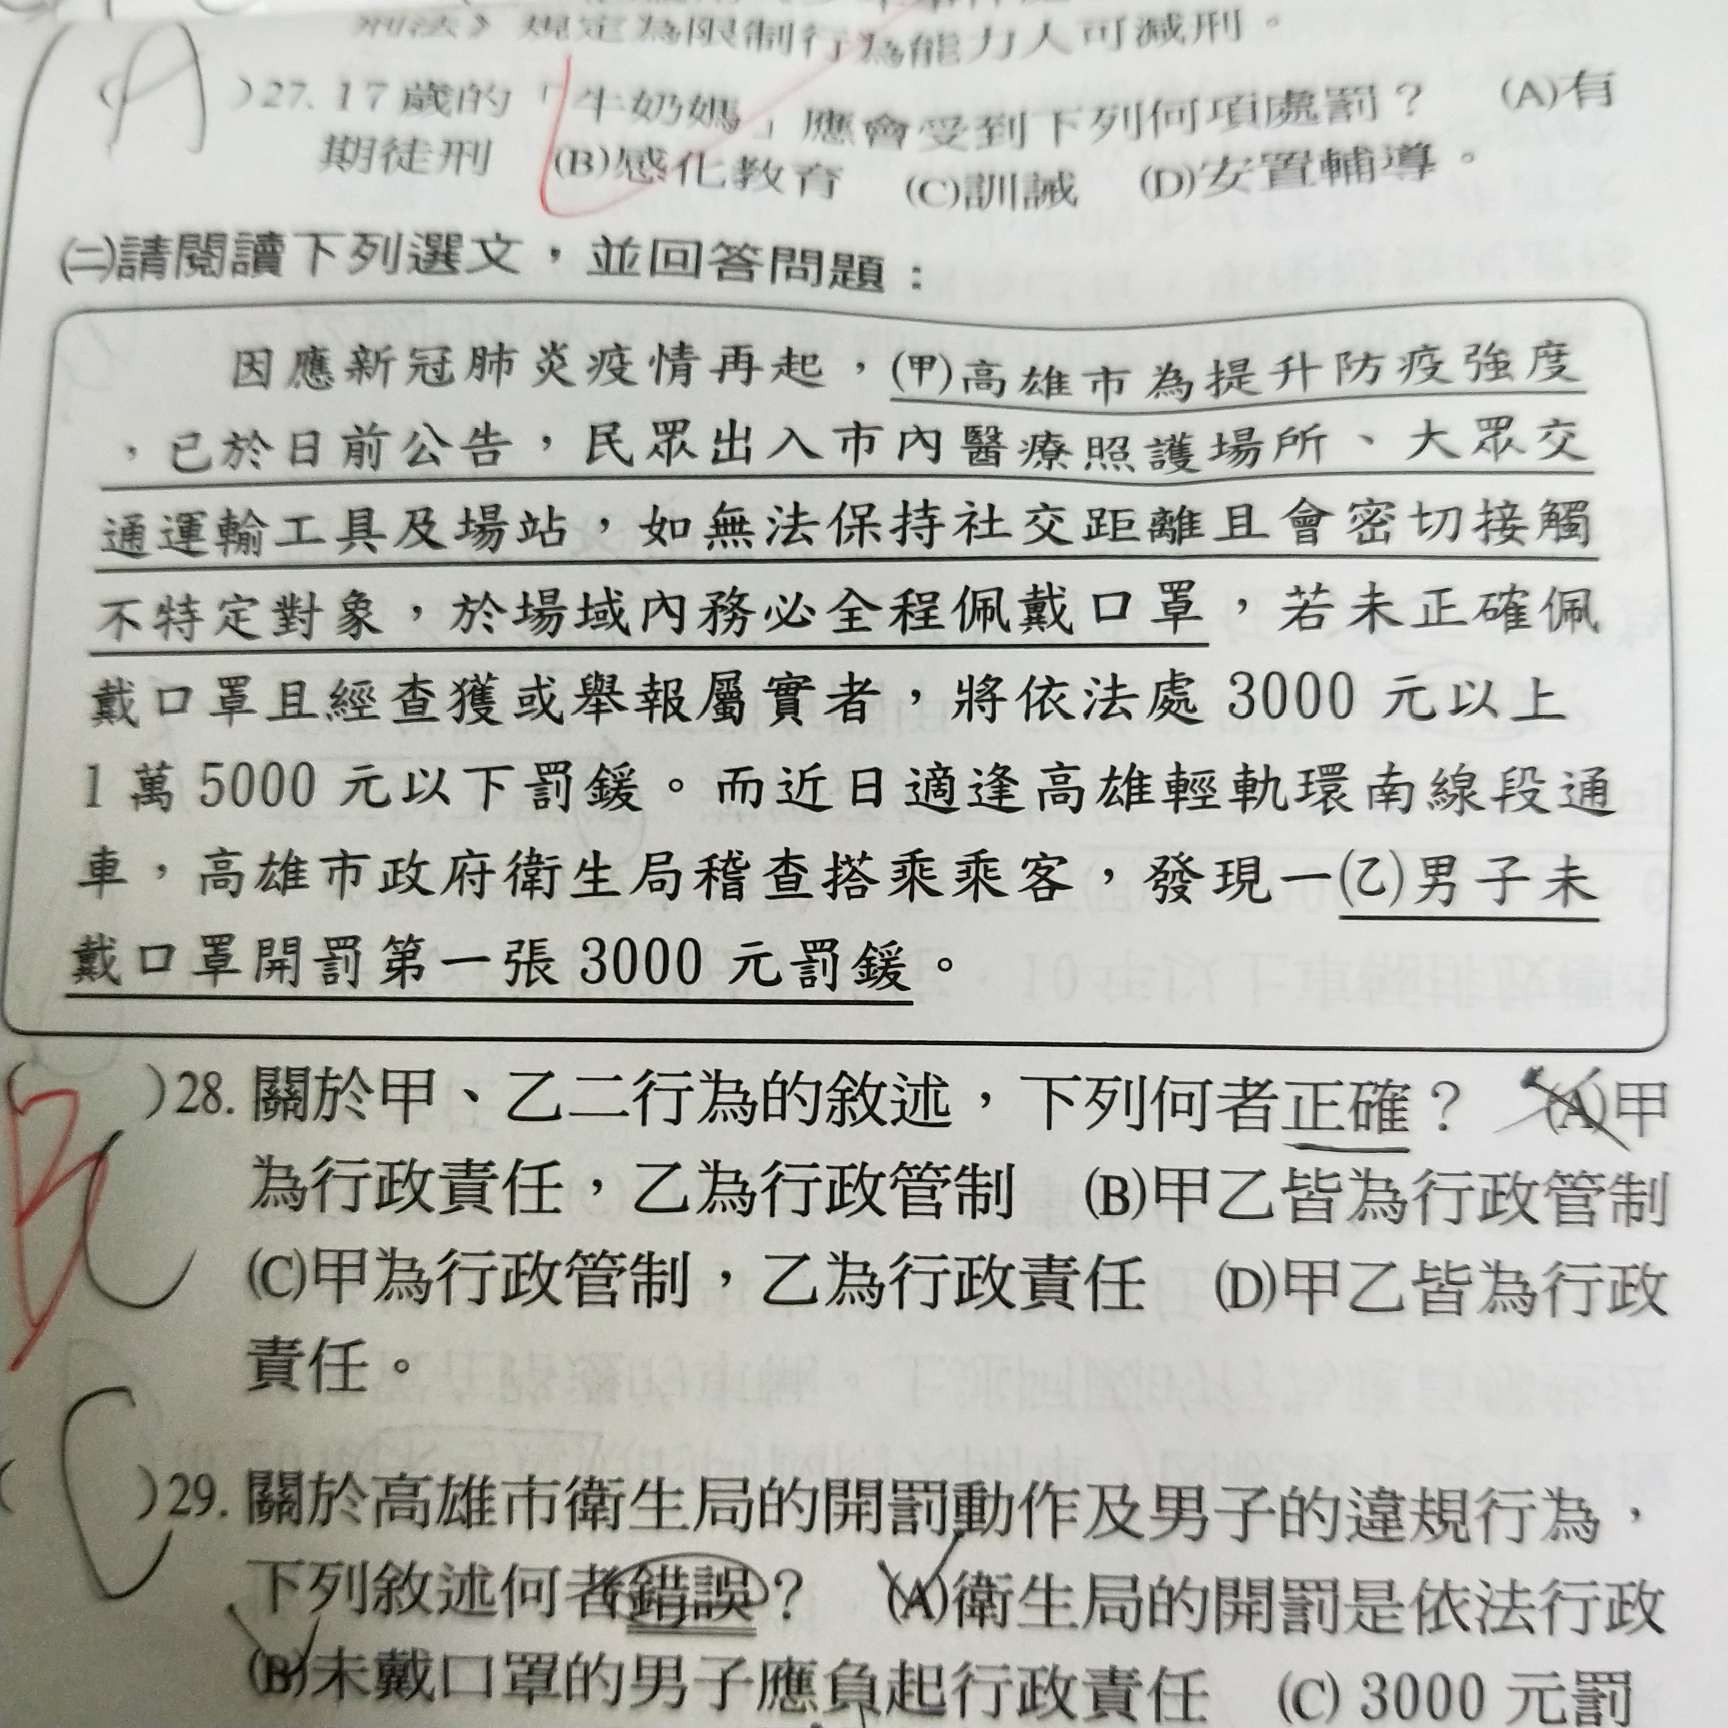 刑法》規定為限制行為能力人可減刑。
(A)27. 17歲的「牛奶媽」應會受到下列何項處罰？ (A)有
期徒刑 (B)感化教育 (C)訓誡 (D)安置輔導。
㈡請閱讀下列選文，並回答問題：
因應新冠肺炎疫情再起，(甲)高雄市為提升防疫強度
，已於日前公告，民眾出入市內醫療照護場所、大眾交
通運輸工具及場站，如無法保持社交距離且會密切接觸
不特定對象，於場域內務必全程佩戴口罩，若未正確佩
戴口罩且經查獲或舉報屬實者，將依法處 3000 元以上
1 萬 5000 元以下罰鍰。而近日適逢高雄輕軌環南線段通
車，高雄市政府衛生局稽查搭乘乘客，發現一(乙)男子未
戴口罩開罰第一張 3000 元罰鍰。
B C )28. 關於甲、乙二行為的敘述，下列何者正確？ (A)甲
為行政責任，乙為行政管制 (B)甲乙皆為行政管制
(C)甲為行政管制，乙為行政責任 (D)甲乙皆為行政
責任。
( C )29. 關於高雄市衛生局的開罰動作及男子的違規行為，
下列敘述何者錯誤？ (A)衛生局的開罰是依法行政
(B)未戴口罩的男子應負起行政責任 (C) 3000 元罰